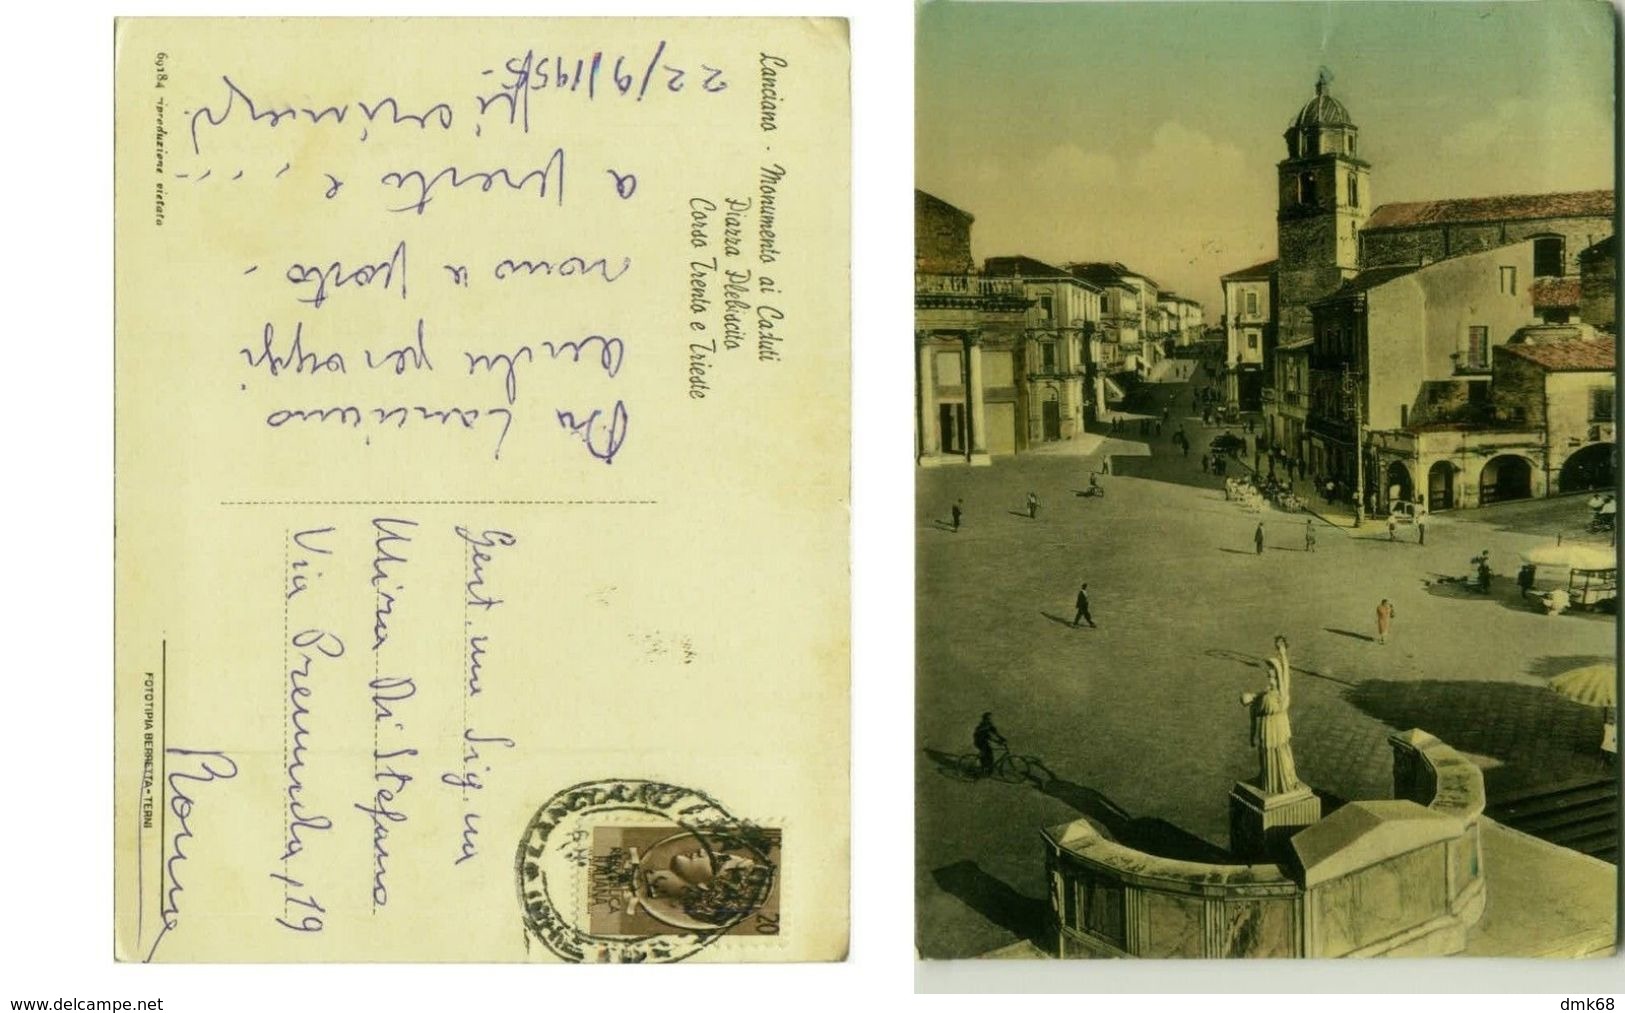 Lanciano - Monumento ai Caduti
Piazza Plebiscito
Corso Trento e Trieste
22/9/1955.
Da Lanciano
per oggi
a posto.
a presto e
Gent.ma Sig.na
Mirra Di Stefano
Via Premuda, 19
Roma
69184 riproduzione vietata
FOTOTIPIA BERRETTA - TERNI
LANCIANO
REPUBBLICA
ITALIANA
20
www.delcampe.net
dmk68